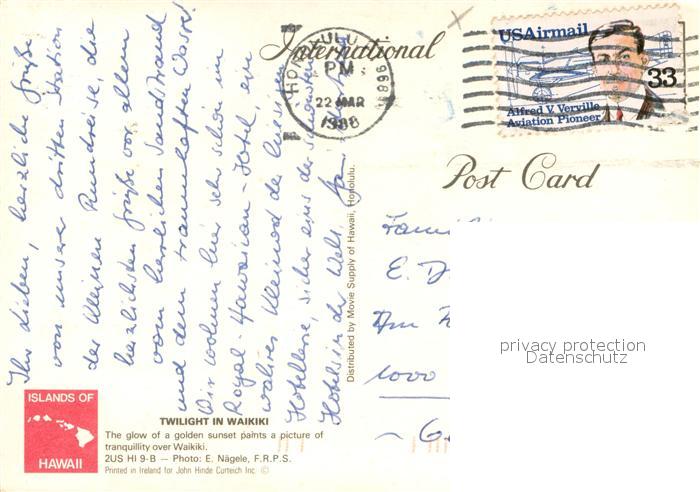 International
Post Card
USAirmail
33
Alfred V. Verville
Aviation Pioneer
HONOLULU
PM
22 MAR
1988
968
Ihr Lieben, herzliche Grüße
von unserer dritten Station
der kleinen Rundreise, die
herzlichsten Grüße vor allem
vom herrlichen Sandstrand
und dem traumhaften Wasser.
Wir wohnen hier sehr schön im
Royal-Hawaiian-Hotel, ein
wahres Kleinod der
Hotellerie, sicher eines der schönsten
Hotels in der Welt.
Distributed by Movie Supply of Hawaii, Honolulu.
Fam
E. D
Am
1000
privacy protection
Datenschutz
ISLANDS OF
HAWAII
TWILIGHT IN WAIKIKI
The glow of a golden sunset paints a picture of
tranquillity over Waikiki.
2US HI 9-B – Photo: E. Nägele, F.R.P.S.
Printed in Ireland for John Hinde Curteich Inc. ©